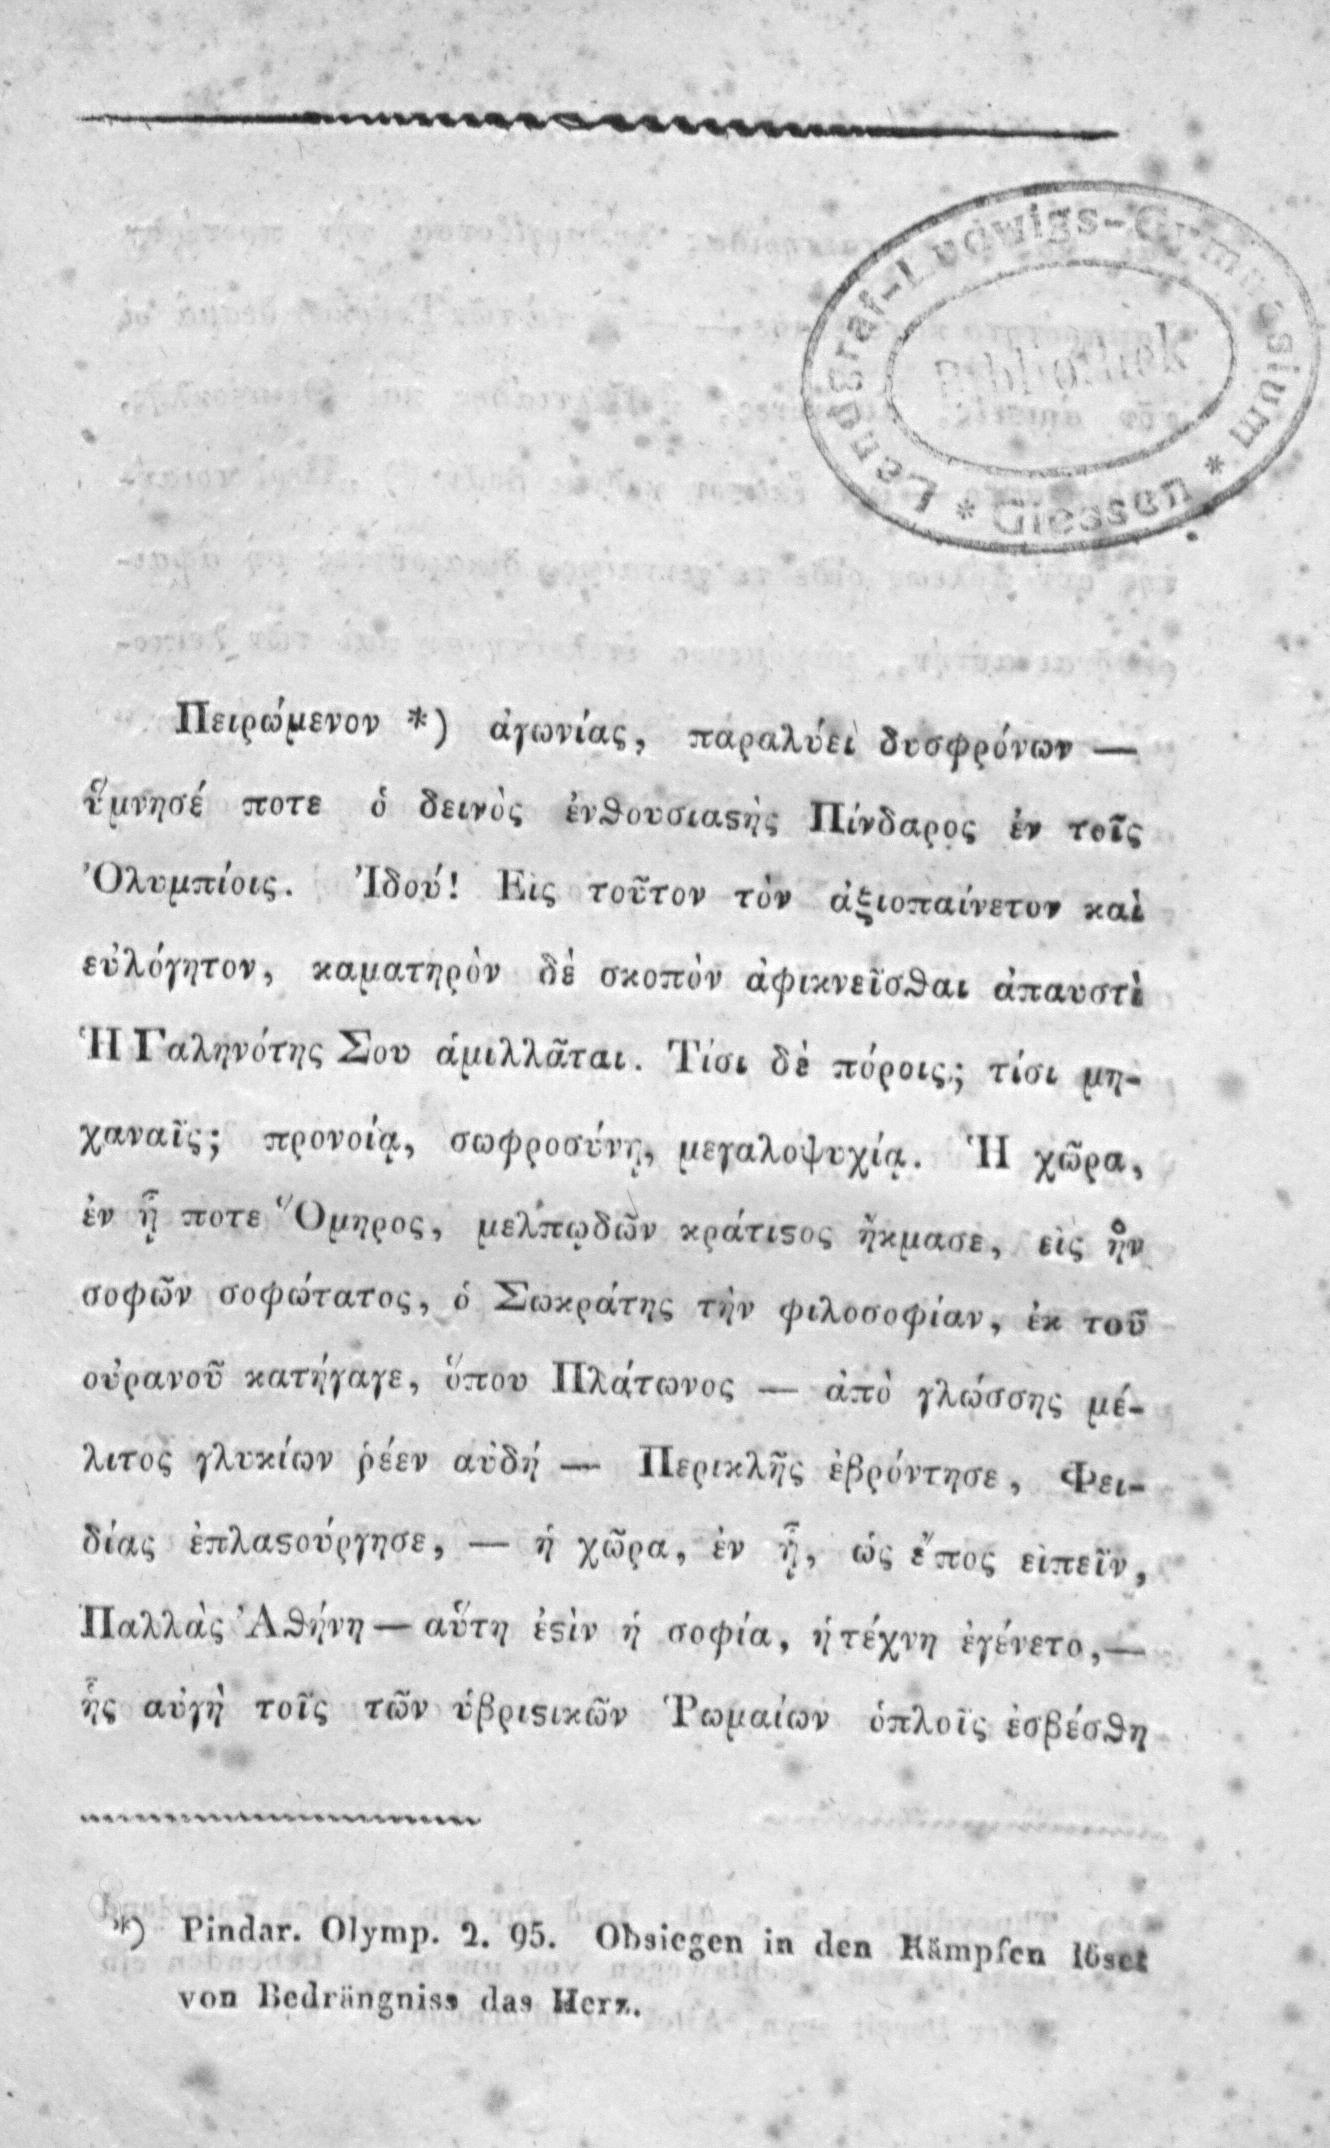 Landgraf-Ludwigs-Gymnasium * Giessen *
Bibliothek
Πειρώμενον *) ἀγωνίας, παραλύει δυσφρόνων —
ὕμνησέ ποτε ὁ δεινὸς ἐνθουσιαςὴς Πίνδαρος ἐν τοῖς
Ὀλυμπίοις. Ἰδού! Εἰς τοῦτον τὸν ἀξιοπαίνετον καὶ
εὐλόγητον, καματηρὸν δὲ σκοπὸν ἀφικνεῖσθαι ἀπαυστὶ
Ἡ Γαληνότης Σου ἁμιλλᾶται. Τίσι δὲ πόροις; τίσι μη-
χαναῖς; προνοίᾳ, σωφροσύνῃ, μεγαλοψυχίᾳ. Ἡ χῶρα,
ἐν ᾗ ποτε Ὅμηρος, μελπῳδῶν κράτιςος ἤκμασε, εἰς ἣν
σοφῶν σοφώτατος, ὁ Σωκράτης τὴν φιλοσοφίαν, ἐκ τοῦ
οὐρανοῦ κατήγαγε, ὅπου Πλάτωνος — ἀπὸ γλώσσης μέ-
λιτος γλυκίων ῥέεν αὐδή — Περικλῆς ἐβρόντησε, Φει-
δίας ἐπλαςούργησε, — ἡ χῶρα, ἐν ᾗ, ὡς ἔπος εἰπεῖν,
Παλλὰς Ἀθήνη — αὕτη ἐςὶν ἡ σοφία, ἡ τέχνη ἐγένετο,—
ἧς αὐγὴ τοῖς τῶν ὑβριςικῶν Ῥωμαίων ὁπλοῖς ἐσβέσθη
*) Pindar. Olymp. 2. 95. Obsiegen in den Kämpfen löset
von Bedrängniss das Herz.